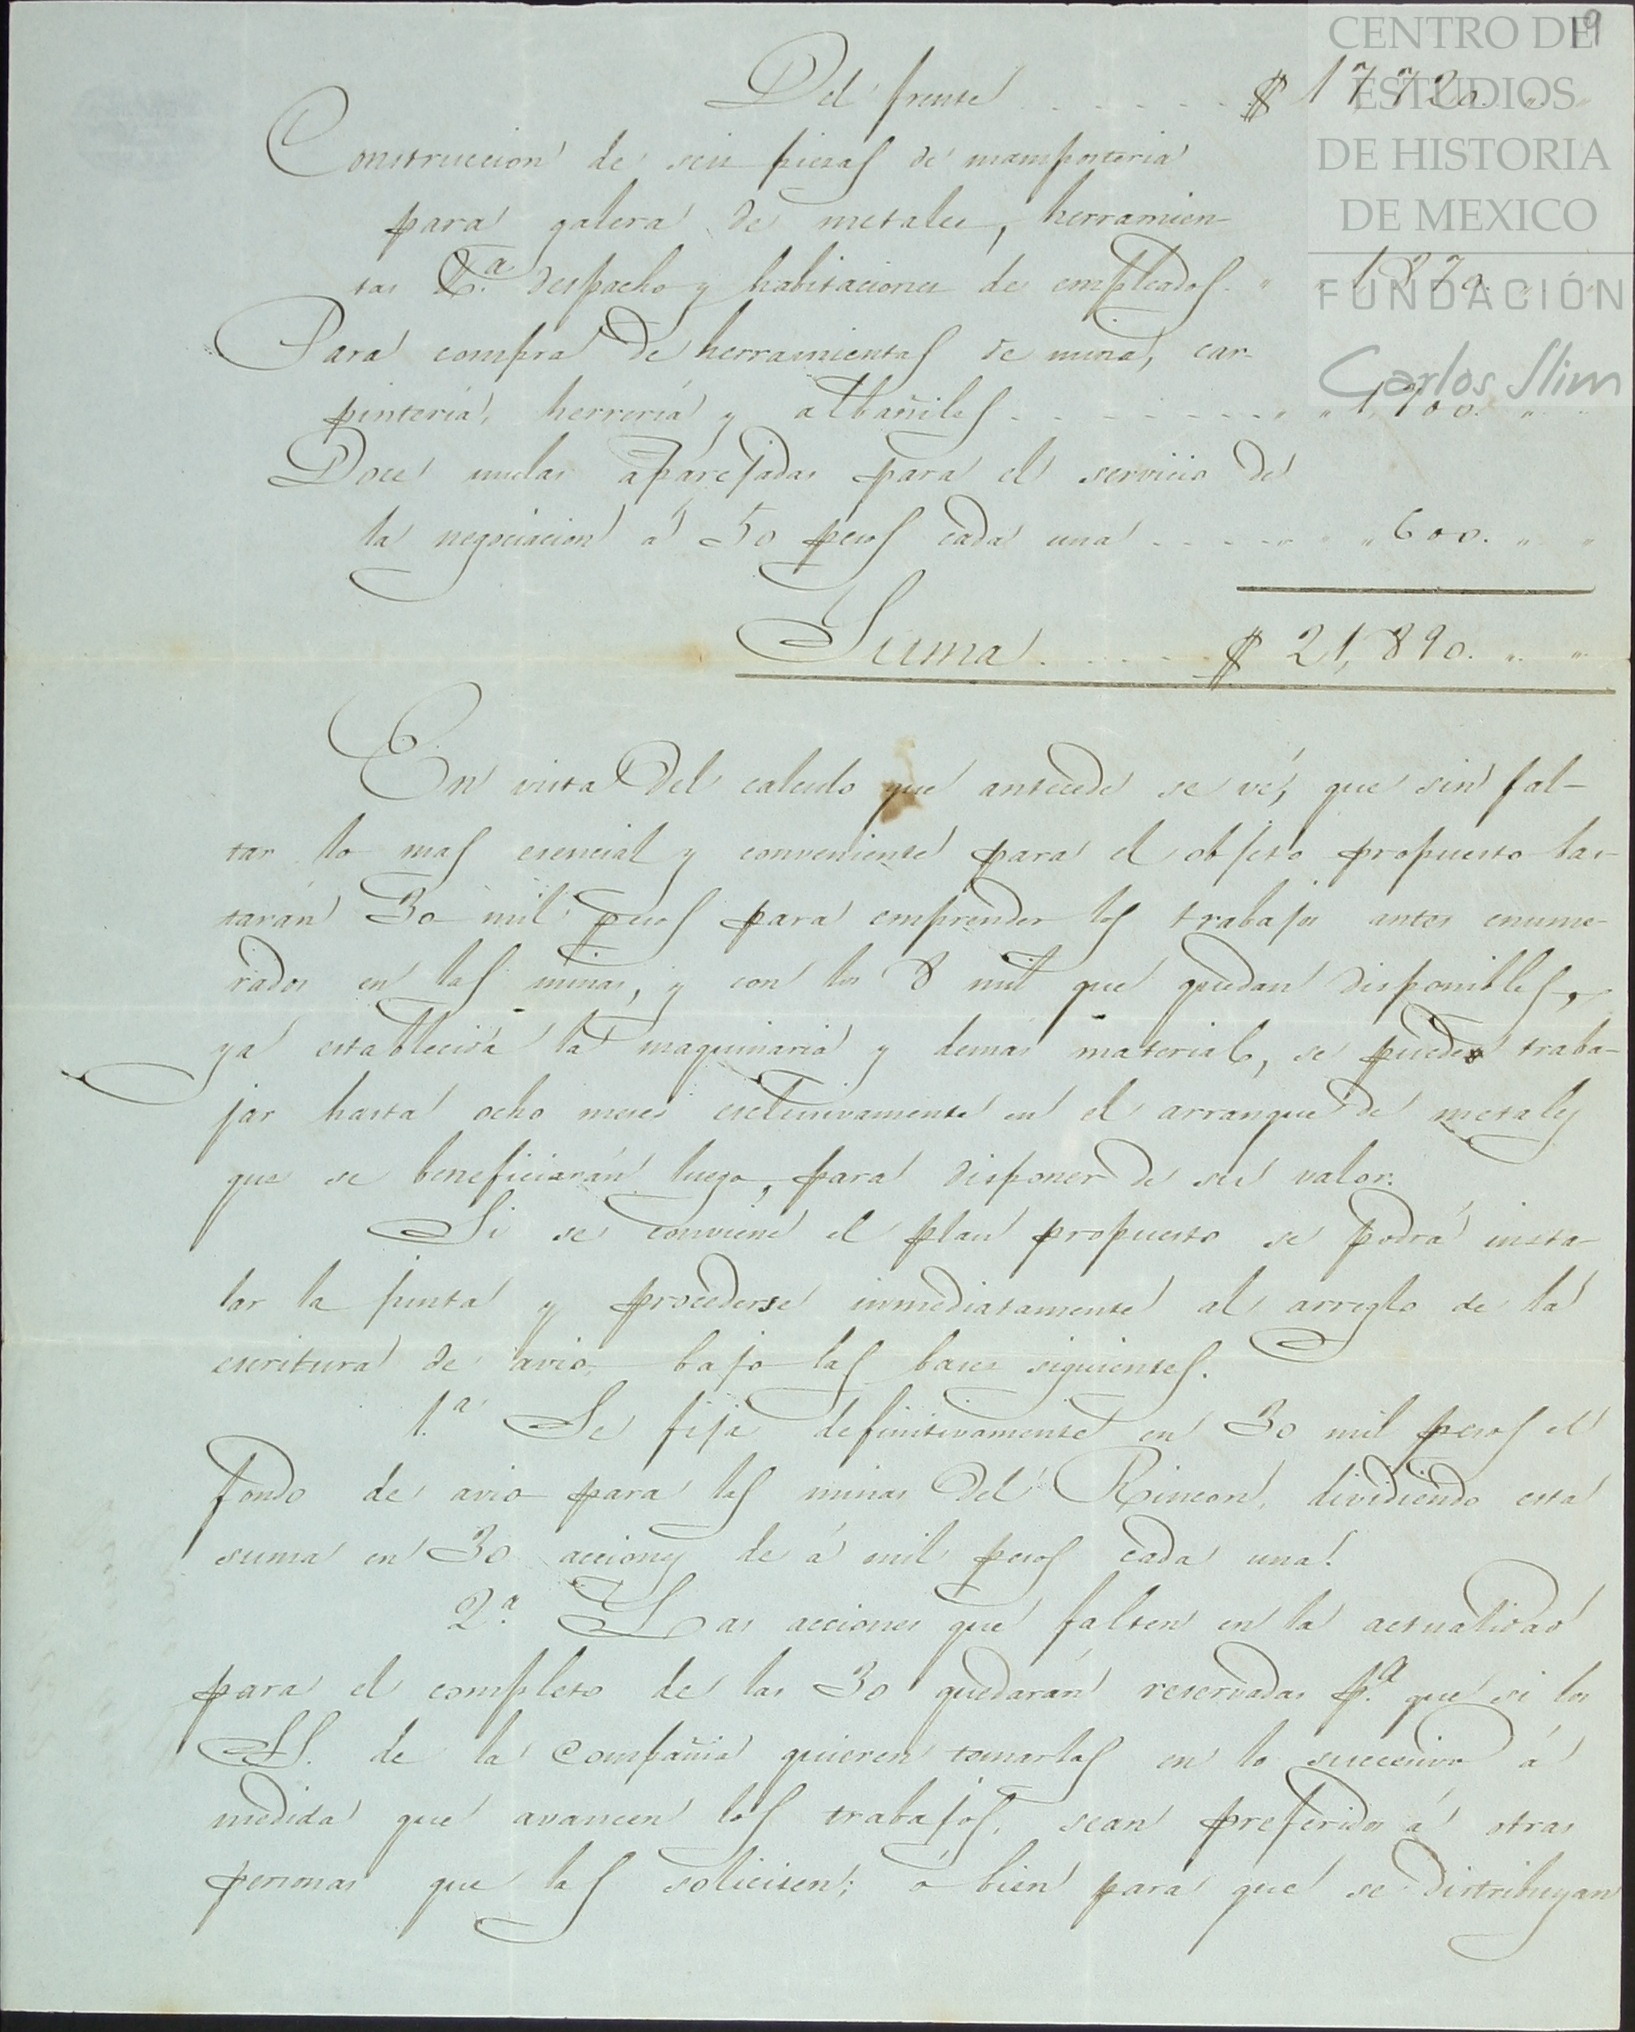 19
CENTRO DE
ESTUDIOS
DE HISTORIA
DE MEXICO
FUNDACIÓN
Carlos Slim
Del frente . . . . . . $ 17720. " "
Construccion de seis piezas de mamposteria
para galera de metales, herramien-
tas &.ª despacho y habitaciones de empleados. " " 1870. " "
Para compra de herramientas de mina, car-
pinteria, herreria y albañiles - - - - - - - - " " 1,700. " "
Doce mulas aparejadas para el servicio de
la negociacion á 50 pesos cada una - - - - " " " 600. " "
Suma . . . . . $ 21,890. " "
En vista del calculo que antecede se vé, que sin fal-
tar lo mas esencial y conveniente para el objeto propuesto bas-
tarán 30 mil pesos para emprender los trabajos antes enume-
rados en las minas, y con los 8 mil que quedan disponibles,
ya establecida la maquinaria y demas material, se puede traba-
jar hasta ocho meses esclusivamente en el arranque de metales
que se beneficiarán luego, para disponer de su valor.
Si se conviene el plan propuesto se podrá insta-
lar la junta y procederse inmediatamente al arreglo de la
escritura de avio, bajo las bases siguientes.
1.ª Se fija definitivamente en 30 mil pesos el
fondo de avio para las minas del Rincon, dividiendo esta
suma en 30 acciones de á mil pesos cada una.
2.ª Las acciones que falten en la actualidad
para el completo de las 30 quedarán reservadas p.ª que si los
SS. de la Compañia quieren tomarlas en lo succesivo á
medida que avancen los trabajos, sean preferidos á otras
personas que las soliciten; ó bien para que se distribuyan